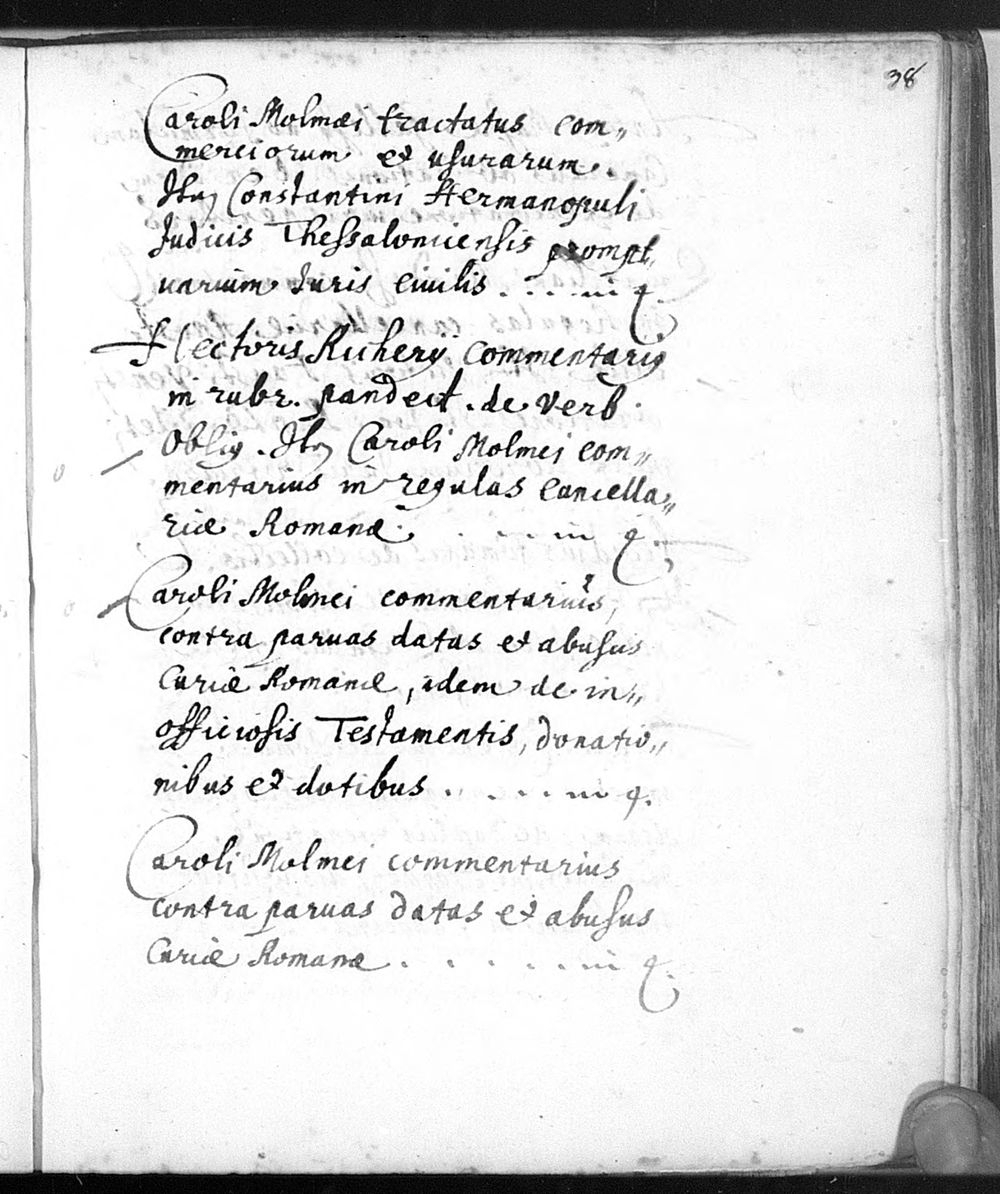 38
Caroli Molmæi tractatus com„
merciorum et usurarum
Itẽ Constantini Hermanopuli
Iudicis Thessaloniiensis prompt„
uarium Iuris Ciuilis . . . . . in 4.
Hectoris Richerij Commentarius
in rubr. pandect. de Verb.
Oblig. Itẽ Caroli Molmei com„
mentarius in regulas Cancella„
riæ Romanæ . . . . . in 4.
Caroli Molmei commentarius,
contra paruas datas et abusus
Curiæ Romanæ, idem de in„
officiosis Testamentis, donatio„
nibus et dotibus . . . . . in 4.
Caroli Molmei commentarius
contra paruas datas et abusus
Curiæ Romanæ . . . . . . in 4.